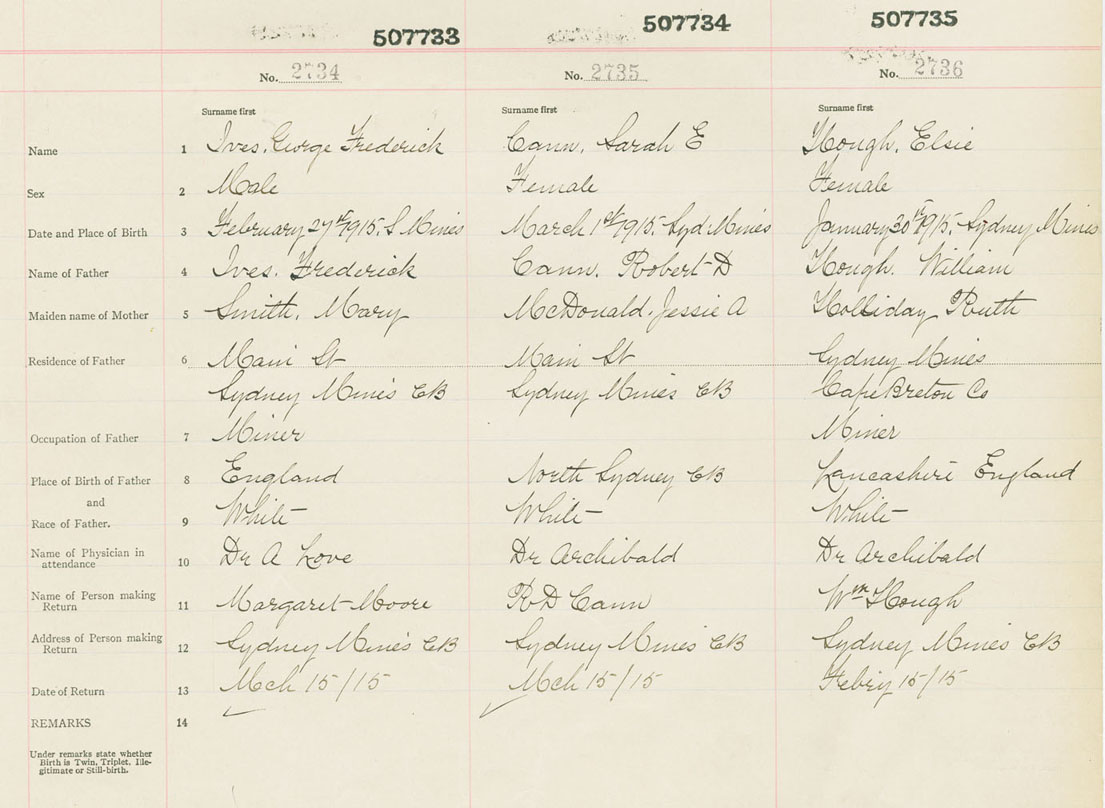 507733 507734 507735
No. 2734 No. 2735 No. 2736
Surname first Surname first Surname first
Name 1 Ives, George Frederick Cann, Sarah E Hough, Elsie
Sex 2 Male Female Female
Date and Place of Birth 3 February 27th 1915, S Mines March 1st 1915-Syd Mines January 30th 1915, Sydney Mines
Name of Father 4 Ives, Frederick Cann, Robert D Hough, William
Maiden name of Mother 5 Smith, Mary McDonald, Jessie A Holliday Ruth
Residence of Father 6 Main St Main St Sydney Mines
Sydney Mines CB Sydney Mines CB Cape Breton Co
Occupation of Father 7 Miner Miner
Place of Birth of Father 8 England North Sydney CB Lancashire England
and
Race of Father. 9 White White White
Name of Physician in
attendance 10 Dr A Love Dr Archibald Dr Archibald
Name of Person making
Return 11 Margaret Moore R D Cann Wm Hough
Address of Person making
Return 12 Sydney Mines CB Sydney Mines CB Sydney Mines CB
Date of Return 13 Mch 15/15 Mch 15/15 Febry 15/15
REMARKS 14
Under remarks state whether
Birth is Twin, Triplet, Ille-
gitimate or Still-birth.